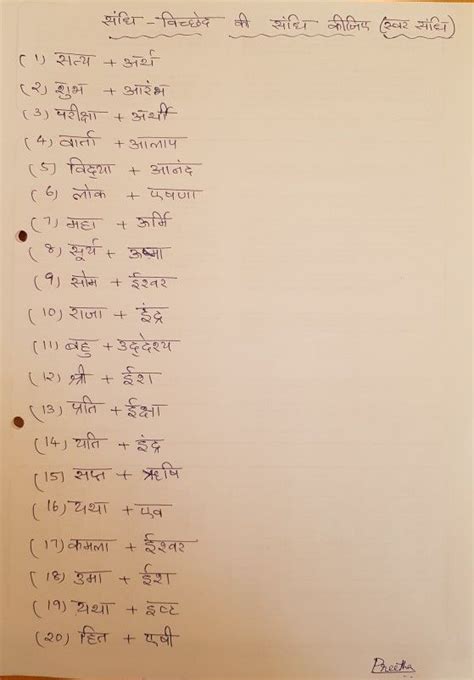 संधि-विच्छेद की संधि कीजिए (स्वर संधि)
(1) सत्य + अर्थ
(2) शुभ + आरंभ
(3) परीक्षा + अर्थी
(4) वार्ता + आलाप
(5) विद्या + आनंद
(6) लोक + एषणा
(7) महा + ऊर्मि
(8) सूर्य + ऊष्मा
(9) सोम + ईश्वर
(10) राजा + इंद्र
(11) बहु + उद्देश्य
(12) श्री + ईश
(13) प्रति + ईक्षा
(14) यति + इंद्र
(15) सप्त + ऋषि
(16) यथा + एव
(17) कमला + ईश्वर
(18) उमा + ईश
(19) यथा + इष्ट
(20) हित + एषी
Preetha